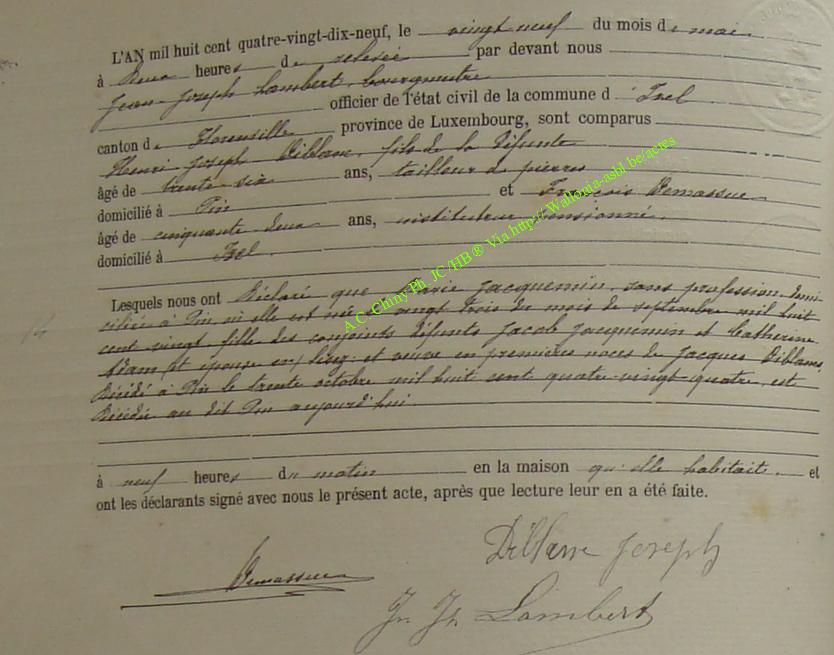 L'AN mil huit cent quatre-vingt-dix-neuf, le vingt neuf du mois de mai
à deux heures de relevée par devant nous
Jean Joseph Lambert, bourgmestre
officier de l'état civil de la commune d'Izel
canton de Florenville province de Luxembourg, sont comparus
Henri Joseph Diblanc, fils de la défunte
âgé de trente six ans, tailleur de pierres
domicilié à Pin et François Demasseux
âgé de cinquante deux ans, instituteur pensionné,
domicilié à Izel
Lesquels nous ont déclaré que Marie Jacquemin, sans profession, domi-
ciliée à Pin où elle est née le vingt trois du mois de septembre mil huit
cent vingt fille des conjoints défunts Jacob Jacquemin et Catherine
Adam et veuve en premières noces de Jacques Diblanc,
décédé à Pin le trente octobre mil huit cent quatre-vingt quatre, est
décédée au dit Pin aujourd'hui
à neuf heures du matin en la maison qu'elle habitait et
ont les déclarants signé avec nous le présent acte, après que lecture leur en a été faite.
Diblanc Joseph
Demasseux
Jn Jh Lambert
14
A.C. Chiny Ph. JC/HB® Via http://Wallonia-asbl.be/actes